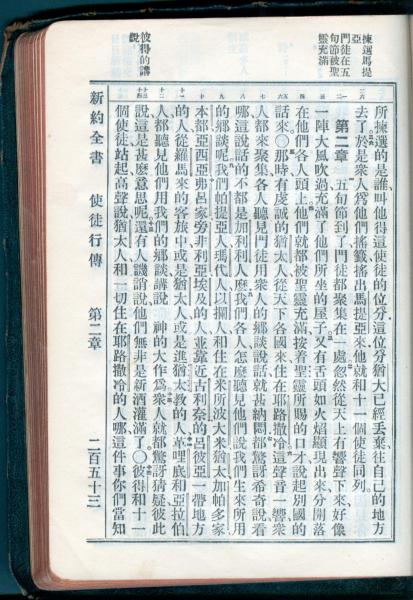 揀選馬提
亞
門徒在五
旬節被聖
靈充滿
彼得的講
說
所揀選的是誰叫他得這使徒的位分這位分猶大已經丟棄往自己的地方
去了於是眾人爲他們搖籤搖出馬提亞來他就和十一個使徒同列
第二章 五旬節到了門徒都聚集在一處忽然從天上有響聲下來好像
一陣大風吹過充滿了他們所坐的屋子又有舌頭如火焰顯現出來分開落
在他們各人頭上他們就都被聖靈充滿按着聖靈所賜的口才說起別國的
話來〇那時有虔誠的猶太人從天下各國來住在耶路撒冷這聲音一響衆
人都來聚集各人聽見門徒用衆人的鄉談說話就甚納悶都驚訝希奇說看
哪這說話的不都是加利利人麼我們各人怎麼聽見他們說我們生來所用
的鄉談呢我們帕提亞人瑪代人以攔人和住在米所波大米猶太加帕多家
本都亞西亞弗呂家旁非利亞埃及的人並靠近古利奈的呂彼亞一帶地方
的人從羅馬來的客旅中或是猶太人或是進猶太教的人革哩底和亞拉伯
人都聽見他們用我們的鄉談講說 神的大作爲衆人就都驚訝猜疑彼此
說這是甚麼意思呢還有人譏誚說他們無非是新酒灌滿了〇彼得和十一
個使徒站起高聲說猶太人和一切住在耶路撒冷的人哪這件事你們當知
新約全書 使徒行傳 第二章 二百五十三